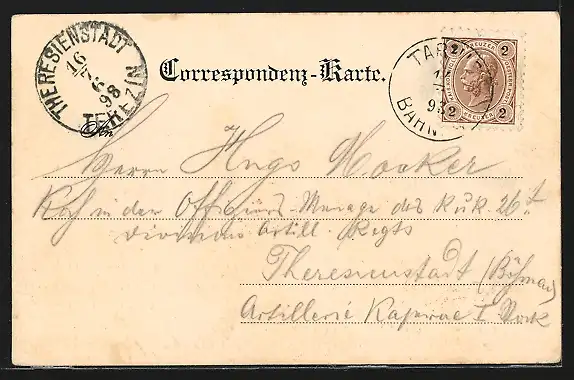 THERESIENSTADT
16
7
6
98
TEREZIN
Correspondenz-Karte.
TAR
98
BAHN
2 KREUZER 2
2 2
An
Herrn Hugo Mocker
Koch in der Offiziers-Menage des K.u.K. 26t.
Divisions Artill. Regts
Theresienstadt (Böhmen)
Artillerie Kaserne I. Stock